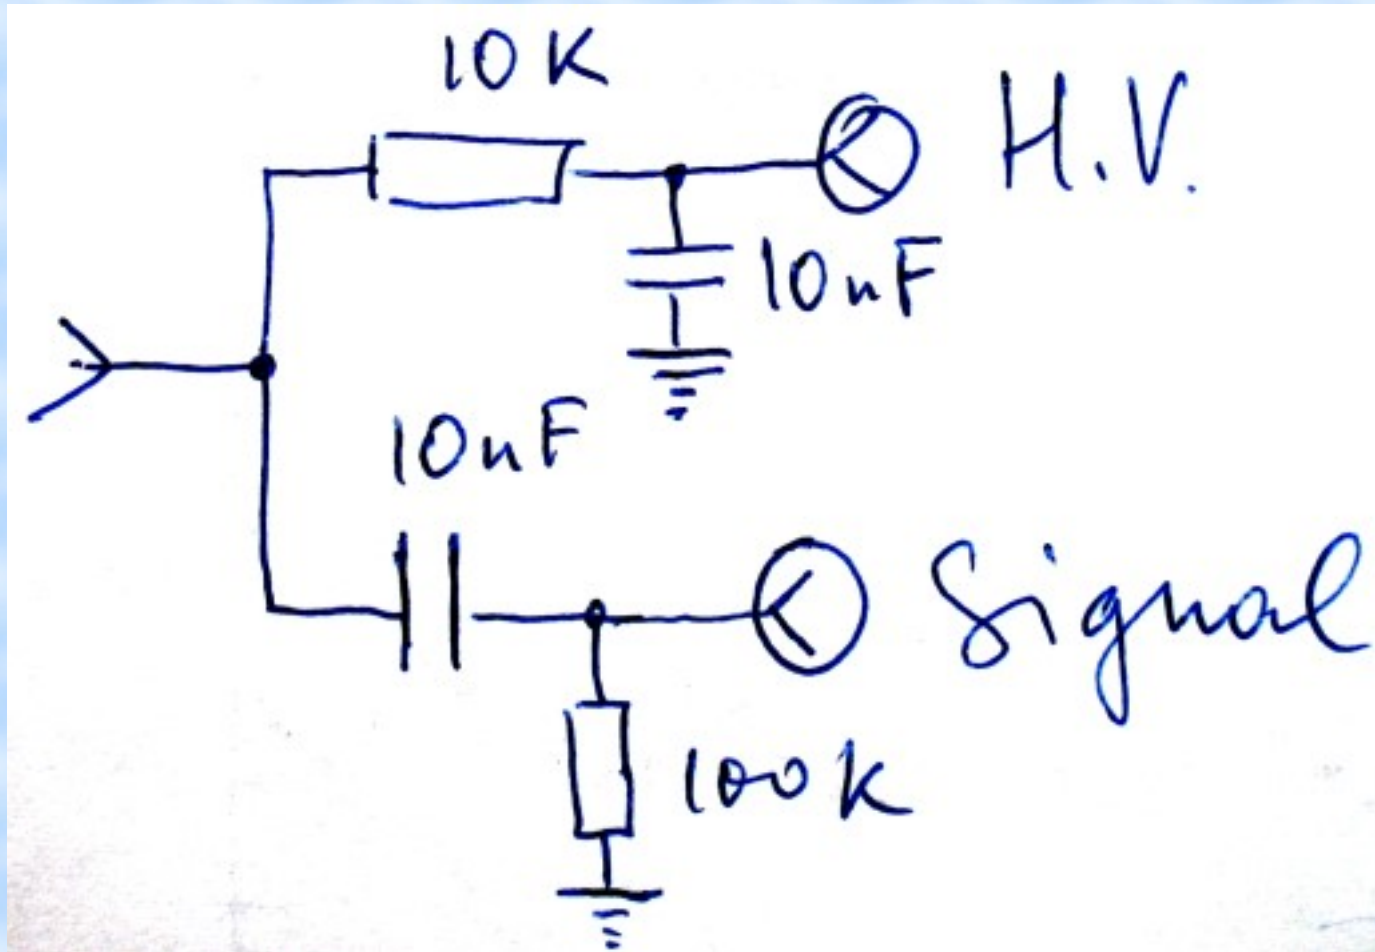 10K
H.V.
10nF
10nF
Signal
100k